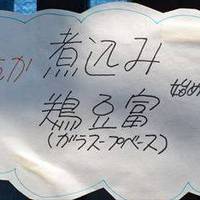 煮込み
鶏豆富
(ガラスープベース)
始め